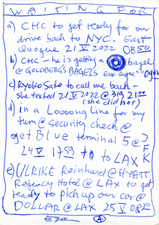 WAITING FOR
a) CHC to get ready for our
drive back to NYC. East
Quogue 21 V 2022 0850
b) CHC - he is getting a bagel
@ GOLDBERG'S BAGELS
c) Ryoko Sato to call me back -
She texted 21 V 2022 @
(she did not)
d) in a Looong line for my
turn @ security check @
JFK
get Blue terminal 5 @
24 V 1755 to LAX
e) ULRIKE Reinhard @ HYATT
Regency Hotel @ LAX to get
ready to pick up our car @
DOLLAR @ LAX 25 V 0820